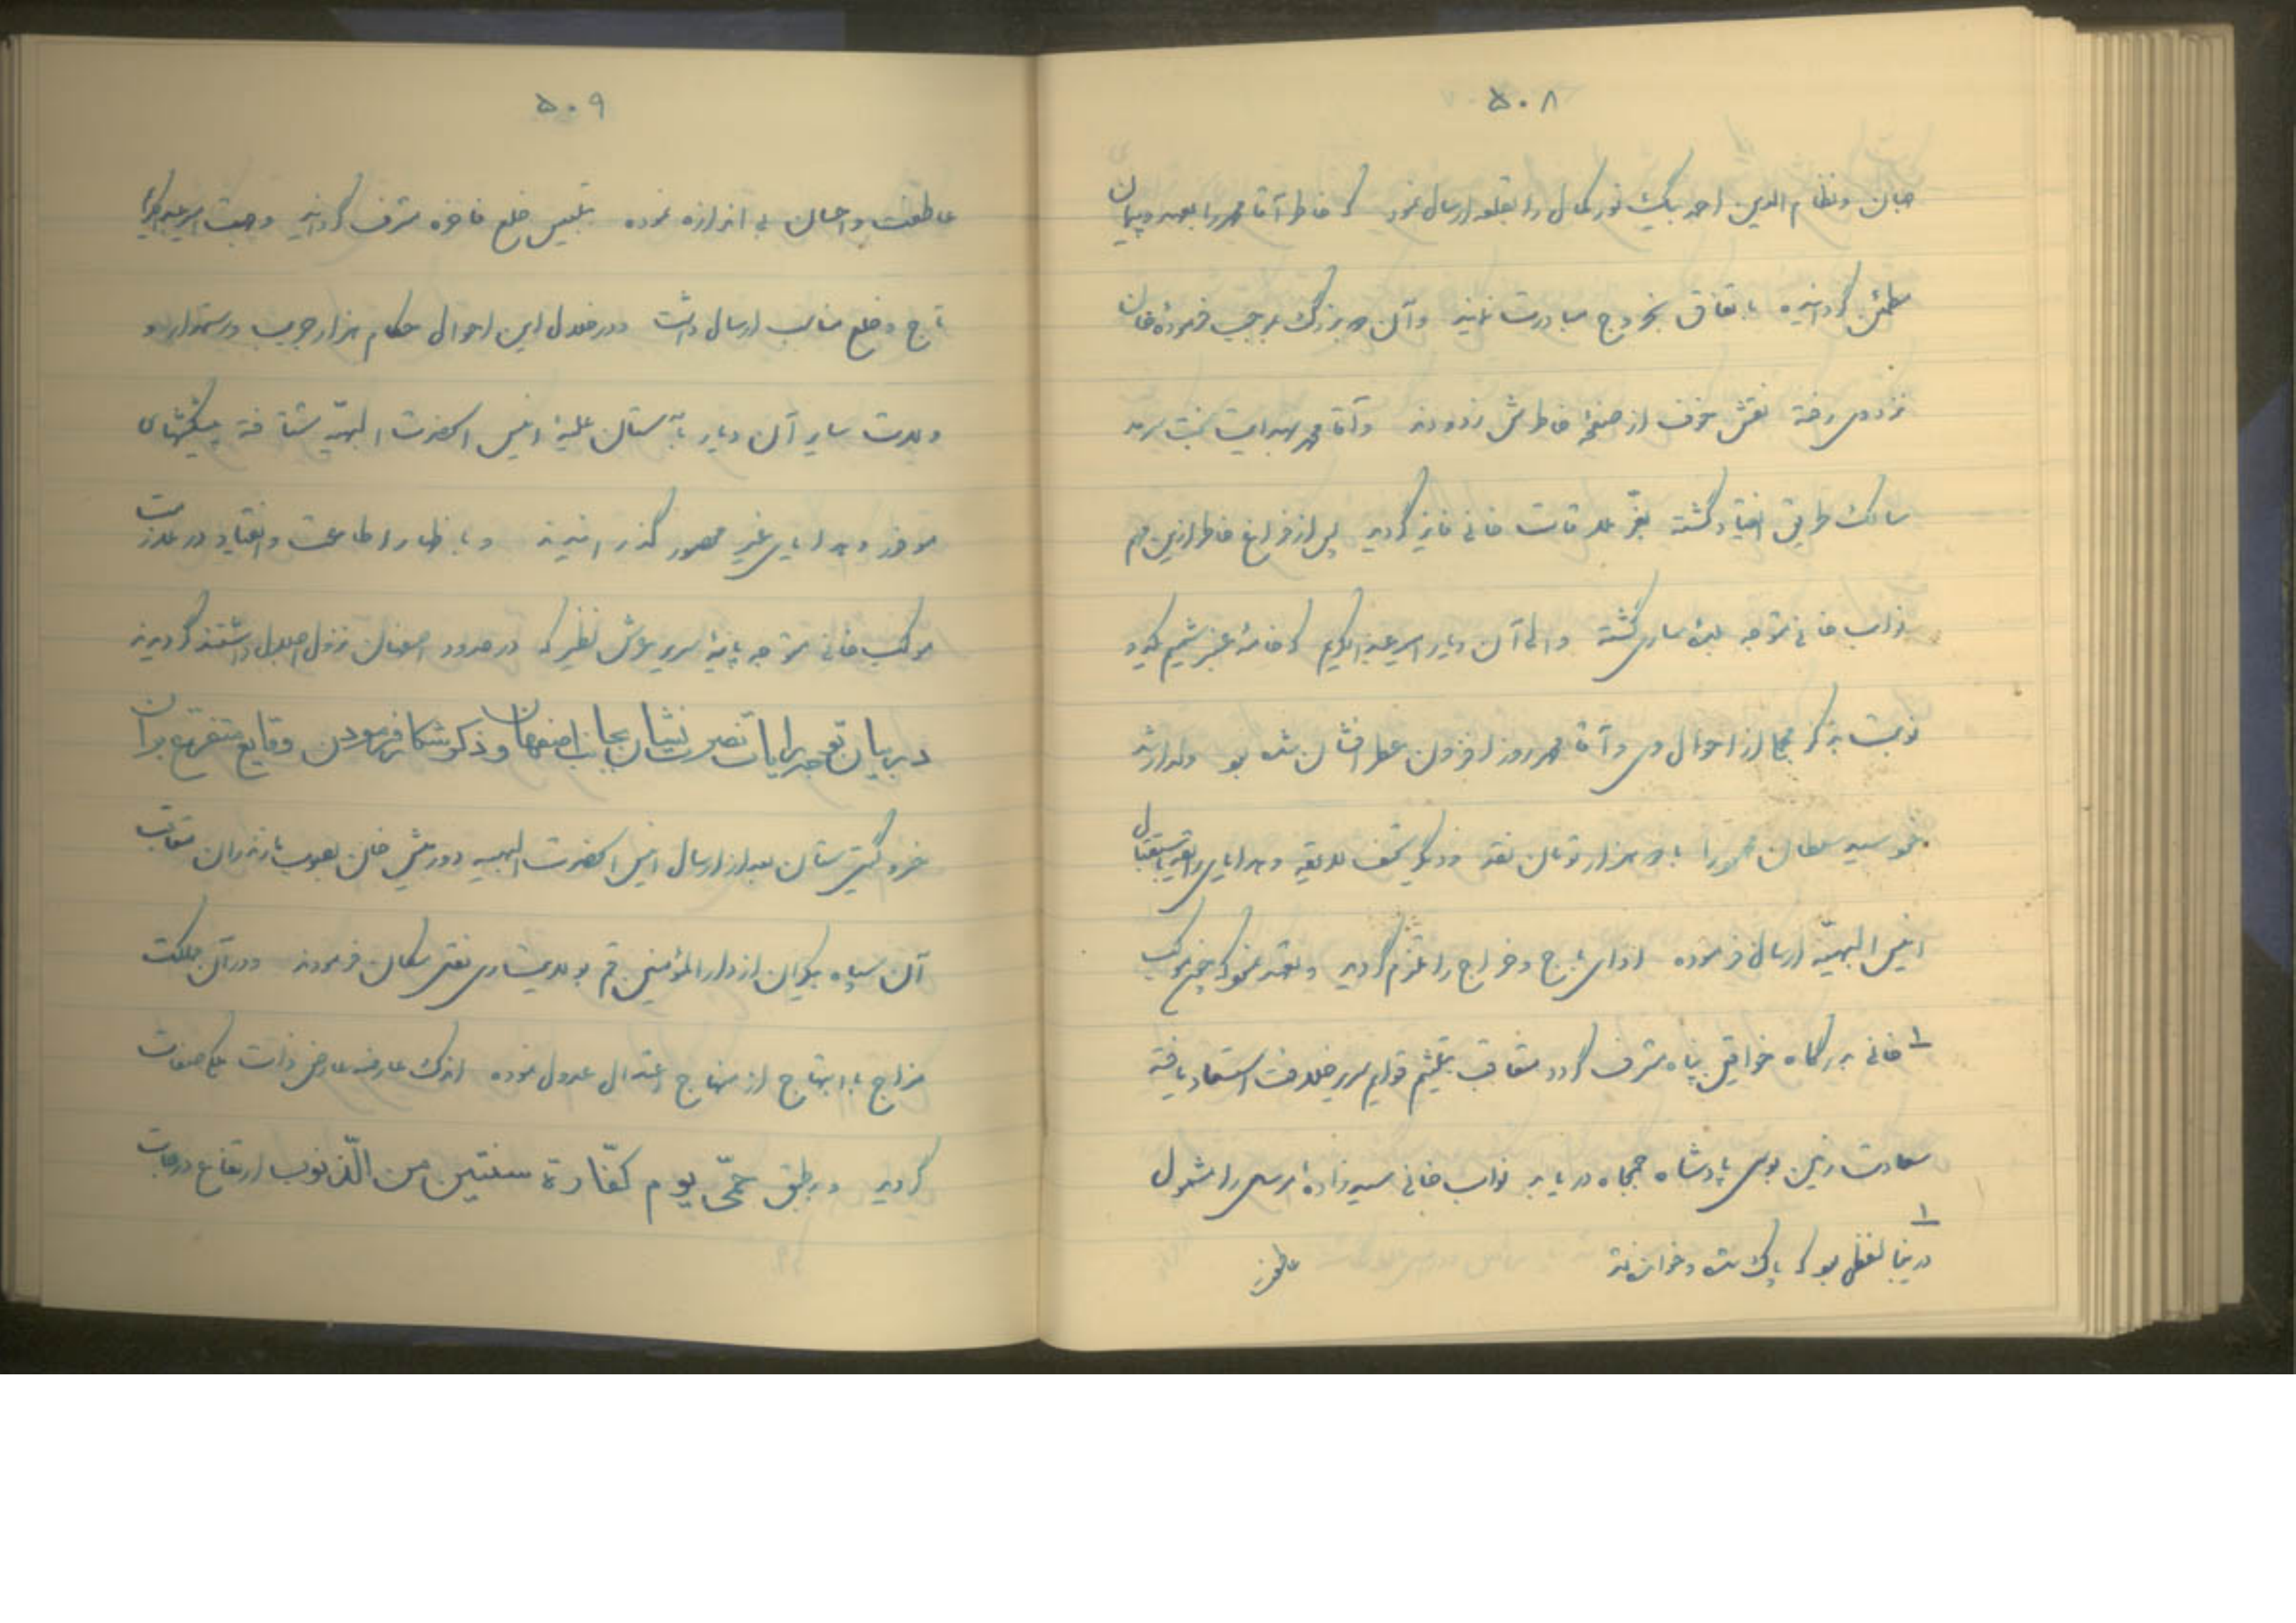 ۵۰۸
جان و نظام الدین احمد بیک نور کمال را بقلعه ارسال نمود که خاطر آقا محمد را بعهد و پیمان
مطمئن گردانیده باتفاق بخروج مبادرت نمایند و آن دو بزرگ بموجب فرموده خان
نزد وی رفته نقش خوف از صفحهٔ خاطرش زدودند و آقا محمد بهدایت بخت سرمد
سالک طریق انقیاد گشته بعزّ ملاقات خانی فایز گردید پس از فراغ خاطر ازین مهم
نواب خانی متوجه بلدهٔ ساری گشته والی آن دیار امیر عبدالکریم که خامهٔ عنبر شمیم یکدو
نوبت بذکر مجملی از احوال وی و آقا محمد روزافزون عطر افشان شده بود ولد ارشد
خود سید سلطان محمود را با دو هزار تومان نقد و دیگر تحف لایقه و هدایای رایقه باستقبال
انیس الحضرت البهیّه ارسال فرموده ادای باج و خراج را ملتزم گردید و تعهد نمود که چون موکب
۱ خانی بدرگاه خواقین پناه مشرف گردد متعاقب بتلثیم قوایم سریر خلافت استسعاد یافته
سعادت زمین بوس پادشاه جمجاه دریابد نواب خانی سید زادهٔ مرسل را مشمول
۱
در اینجا لفظی بود که پاک شده و خوانده نشد
عاطفت
۵۰۹
عاطفت و احسان بی اندازه نموده بتلبیس خلع فاخره مشرف گردانید و جهت امیر عبدالکریم
تاج و خلع مناسب ارسال داشت و در خلال این احوال حکام هزار جریب و رستمدار و
ولات سایر آن دیار بآستان علیهٔ انیس الحضرت البهیّه شتافته پیشکشهای
موفور و هدایای غیر محصور گذرانیدند و باظهار اطاعت و انقیاد در ملازمت
موکب خانی متوجه پایهٔ سریر عرش نظیر که در حدود اصفهان نزول اجلال داشتند گردیدند
در بیان توجه رایات نصرت نشان بجانب اصفهان و ذکر شکار فرمودن و وقایع متفرقهٔ بر آن
خسرو گیتی ستان بعد از ارسال انیس الحضرت البهیه دورمش خان بصوب مازندران متعاقب
آن سپاه بیکران از دار المؤمنین قم بولایت ساری نقل مکان فرمودند و در آن مملکت
مزاج با ابتهاج از منهاج اعتدال عدول نموده اندک عارضه عارض ذات ملک صفات
گردید و بر طبق حمّی یوم کفّارة سنتین من الذّنوب ارتفاع درجات